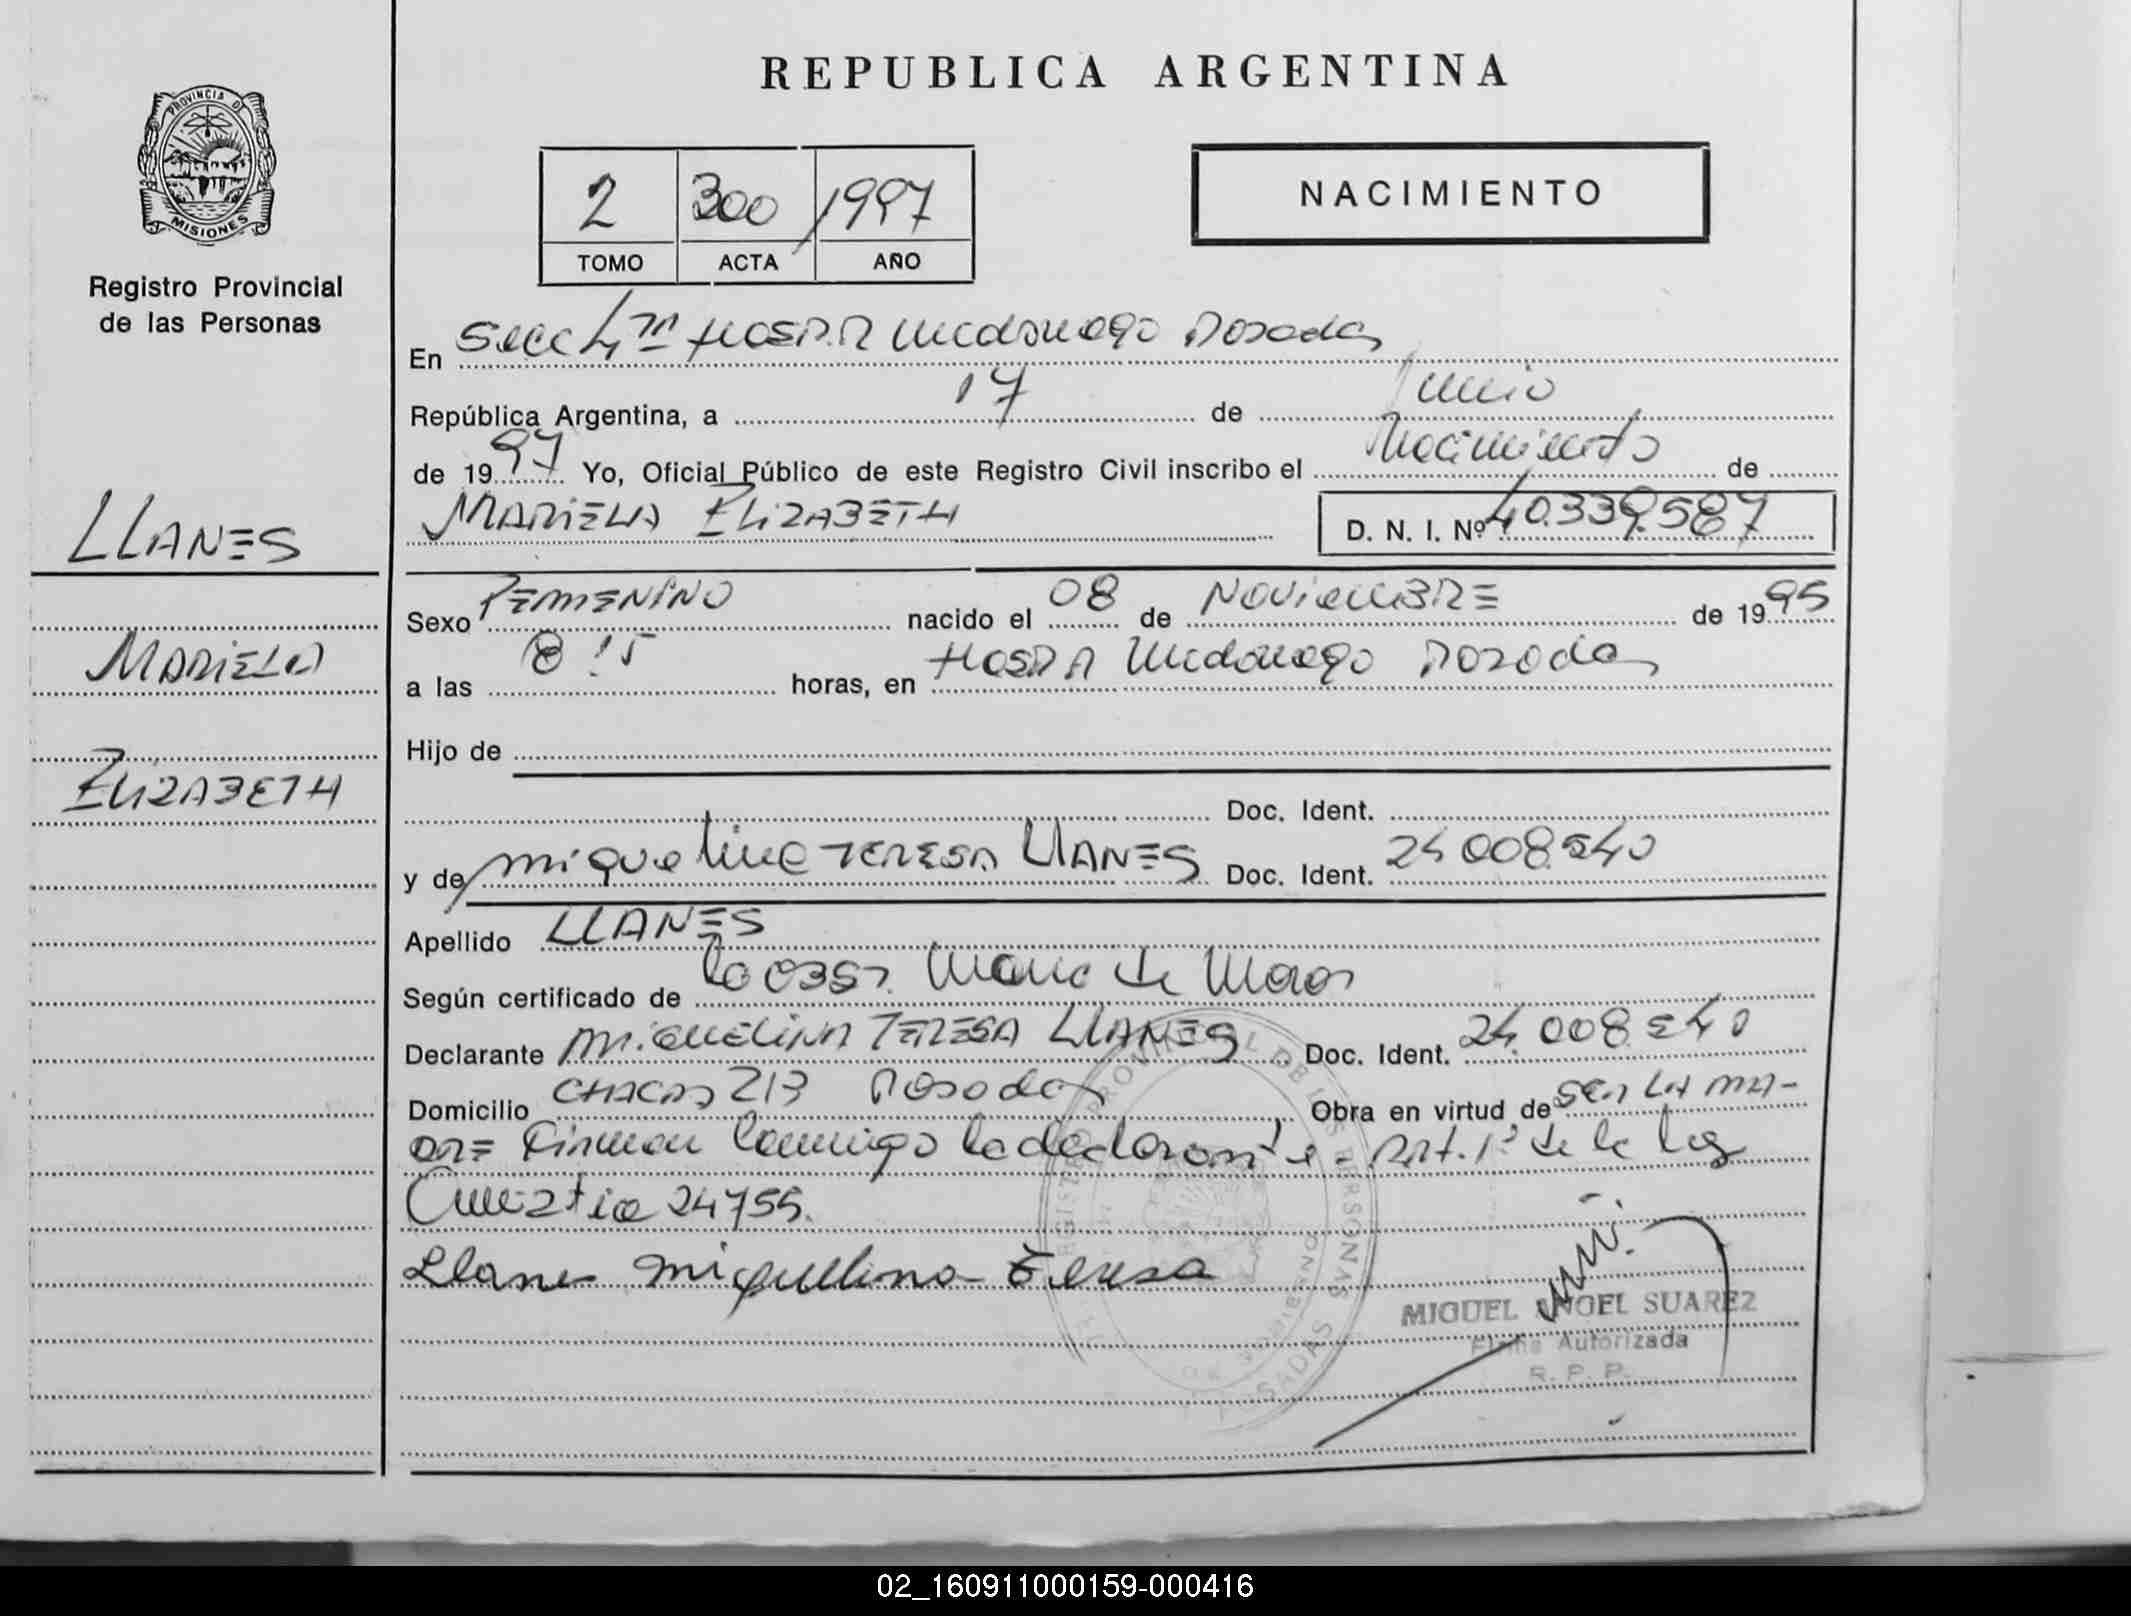 REPUBLICA ARGENTINA
PROVINCIA DE
MISIONES
Registro Provincial
de las Personas
2 300 / 1997
TOMO ACTA AÑO
NACIMIENTO
En Secc 4ta HOSP.R Madariaga Posadas
República Argentina, a 17 de Junio
de 1997 Yo, Oficial Público de este Registro Civil inscribo el Nacimiento de
MARIELA ELIZABETH D. N. I. Nº 40.339.587
LLANES
MARIELA
ELIZABETH
Sexo FEMENINO nacido el 08 de NOVIEMBRE de 1995
a las 8:15 horas, en HOSP.R Madariaga Posadas
Hijo de
Doc. Ident.
y de Miguelina TERESA LLANES Doc. Ident. 24 008.540
Apellido LLANES
Según certificado de la OBST. Maria de
Declarante MIGUELINA TERESA LLANES Doc. Ident. 24.008.540
Domicilio 213 Posadas Obra en virtud de SER LA MA-
DRE Firman conmigo la declarante - Art. 1º de la Ley
Amnistia 24755.
Llanes Miguelina Teresa
MIGUEL ANGEL SUAREZ
Firma Autorizada
R. P. P.
02_160911000159-000416